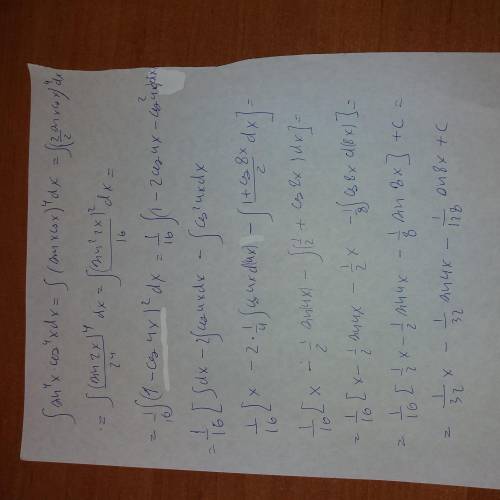 ∫sin⁴x cos⁴x dx = ∫(sin x cos x)⁴ dx = ∫(2 sin x cos x / 2)⁴ dx
= ∫ (sin 2x)⁴ / 2⁴ dx = ∫ (sin² 2x)² / 16 dx =
= 1/16 ∫(1 - cos 4x)² dx = 1/16 ∫(1 - 2cos 4x - cos² 4x)dx
= 1/16 [∫dx - 2∫cos 4x dx - ∫cos² 4x dx
1/16 [x - 2·1/4 ∫cos 4x d(4x) - ∫ (1 + cos 8x)/2 dx] =
1/16 [x - 1/2 sin(4x) - ∫(1/2 + cos 8x) dx] =
= 1/16 [x - 1/2 sin 4x - 1/2 x - 1/8 ∫cos 8x d(8x)] =
= 1/16 [1/2 x - 1/2 sin 4x - 1/8 sin 8x] + C =
= 1/32 x - 1/32 sin 4x - 1/128 sin 8x + C